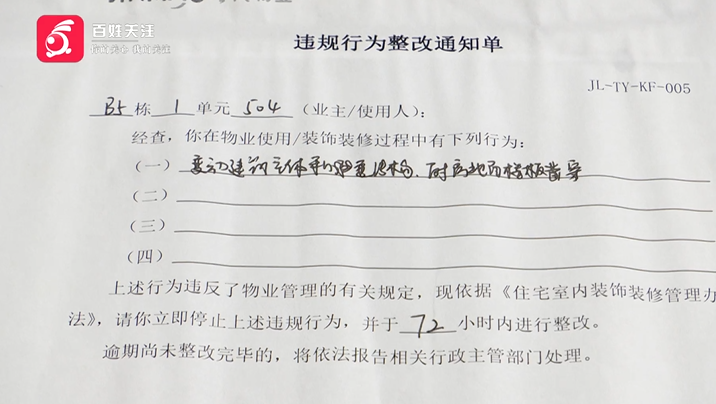 百姓关注
你的关心 我的关注
违规行为整改通知单
JL-TY-KF-005
B5栋 1 单元 504（业主/使用人）：
经查，你在物业使用/装饰装修过程中有下列行为：
（一）变动建筑主体和承重结构、
（二）
（三）
（四）
上述行为违反了物业管理的有关规定，现依据《住宅室内装饰装修管理办
法》，请你立即停止上述违规行为，并于 72 小时内进行整改。
逾期尚未整改完毕的，将依法报告相关行政主管部门处理。